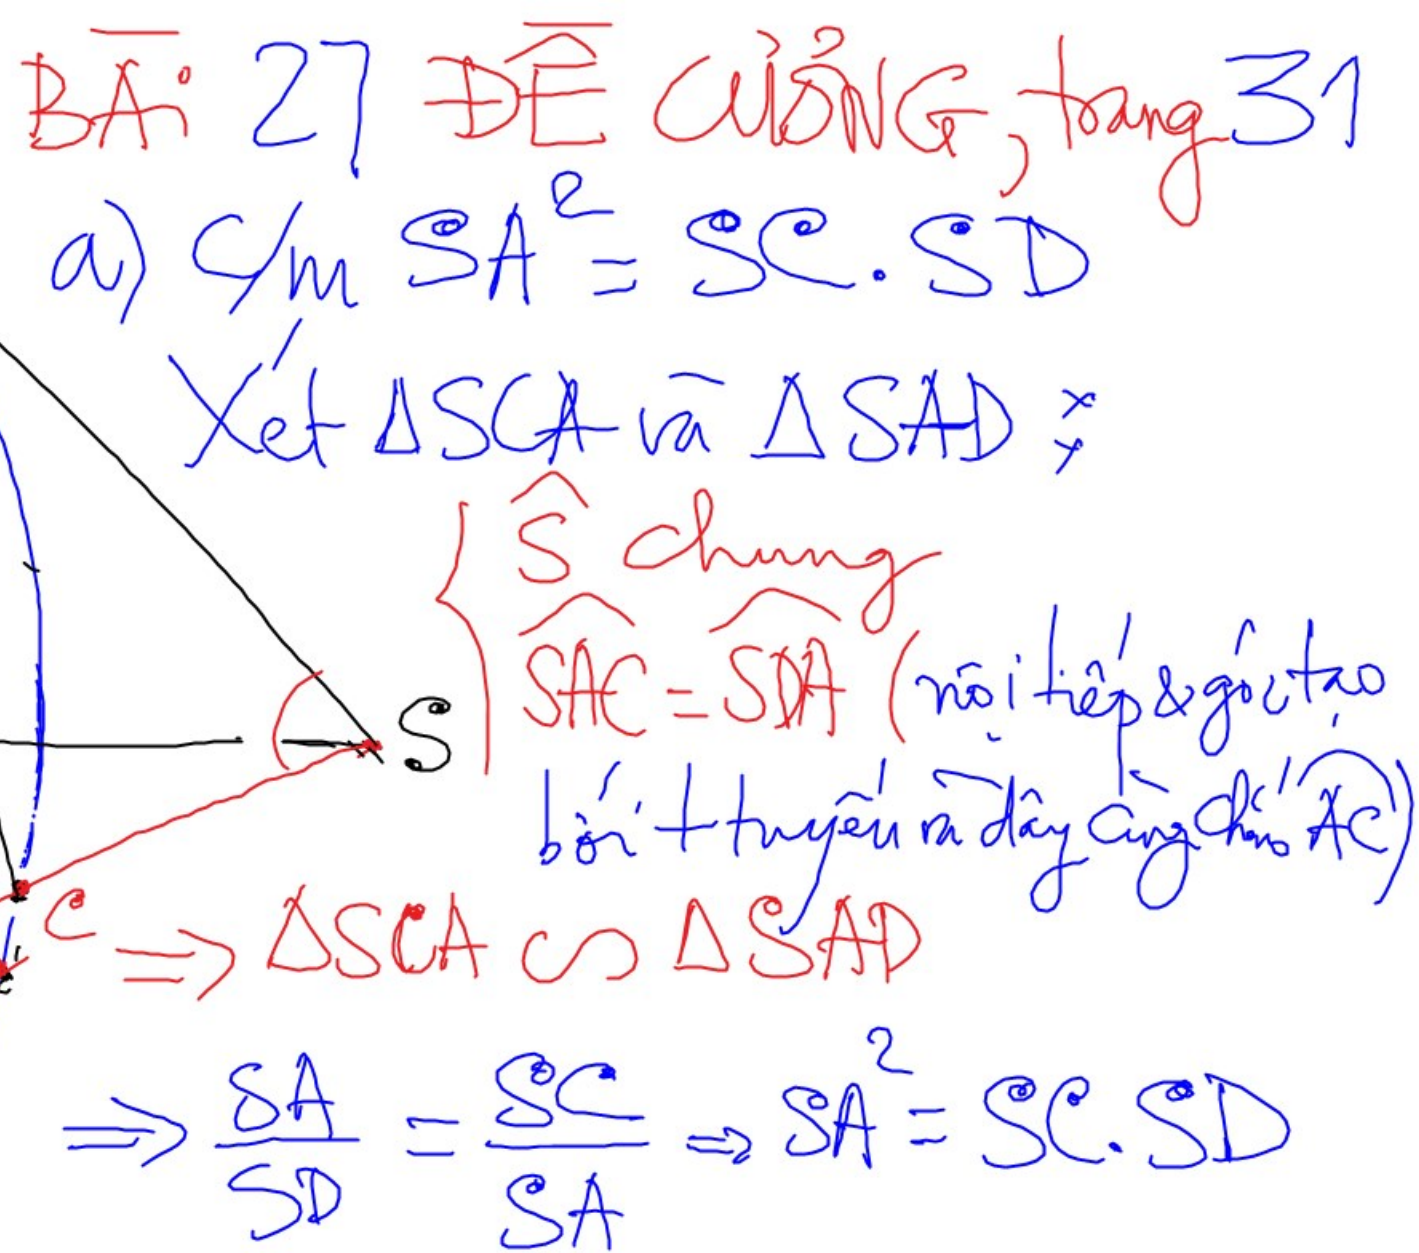 BÀi 27 ĐỀ CƯƠNG, trang 31
a) c/m SA² = SC.SD
Xét ΔSCA và ΔSAD:
Ŝ chung
S
SAC = SDA (nội tiếp & góc tạo
bởi t tuyến và dây cùng chắn AC)
C
⇒ ΔSCA ∽ ΔSAD
⇒ SA/SD = SC/SA ⇒ SA² = SC.SD